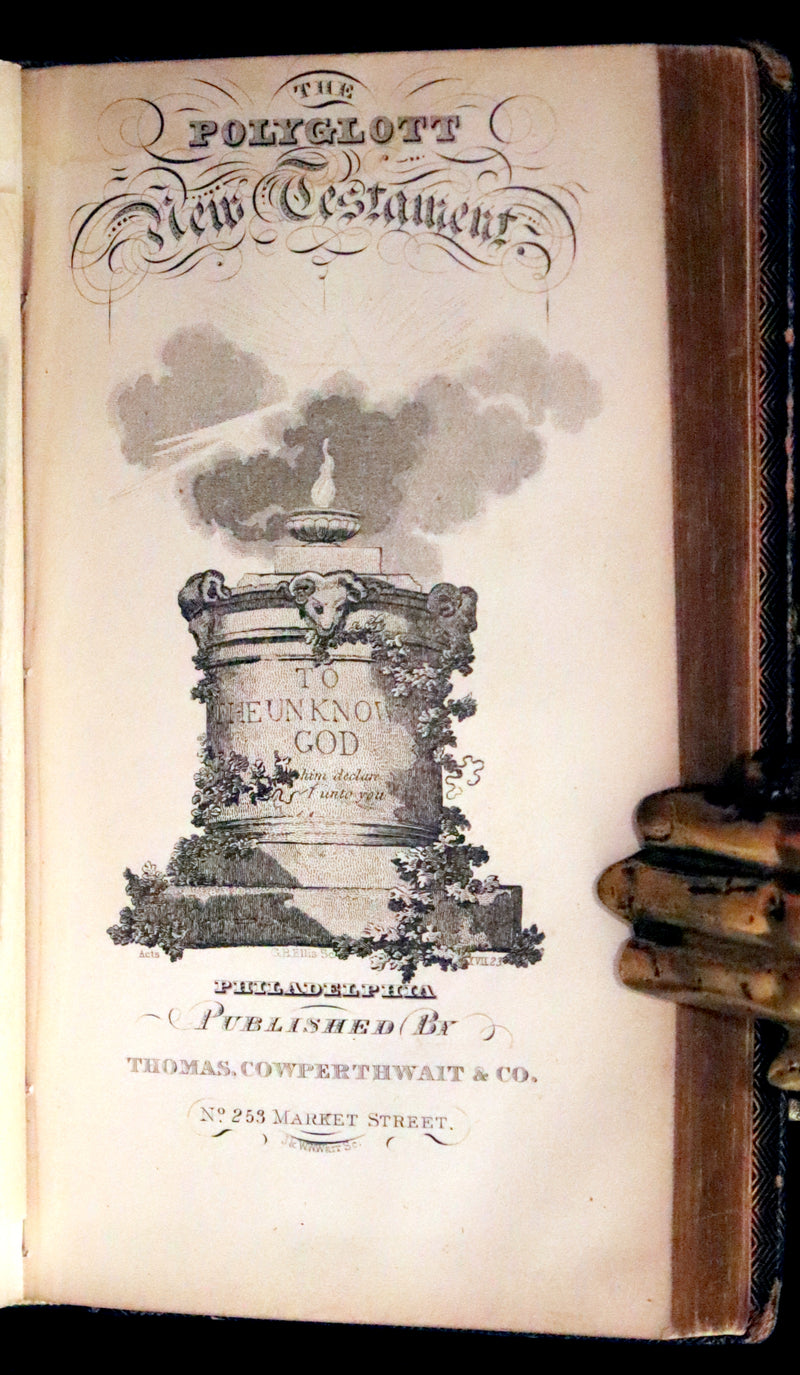 THE
POLYGLOTT
New Testament
TO
THE UNKNOW
GOD
him declare
I unto you
Acts
G.H. Ellis Sc
XVII.23
PHILADELPHIA
PUBLISHED BY
THOMAS, COWPERTHWAIT & CO.
No. 253 MARKET STREET.